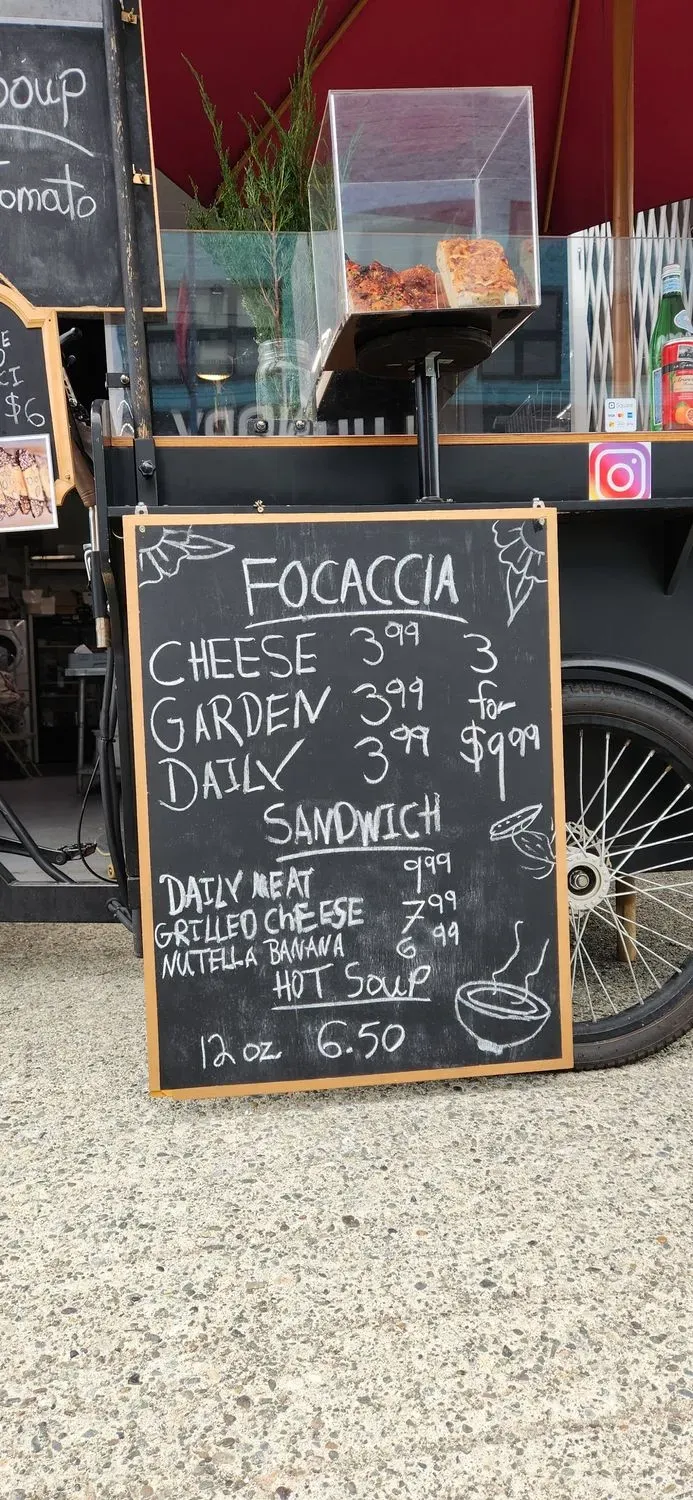 oup
omato
$6
FOCACCIA
CHEESE 3.99 3
GARDEN 3.99 for
DAILY 3.99 $9.99
SANDWICH
DAILY MEAT 9.99
GRILLED CHEESE 7.99
NUTELLA BANANA 6.99
HOT SOUP
12 oz 6.50
Square